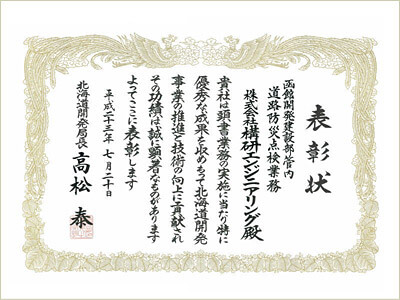 表彰状
函館開発建設部管内
道路防災点検業務
株式会社構研エンジニアリング殿
貴社は頭書業務の実施に当たり特に
優秀な成果を収めもって北海道開発
事業の推進と技術の向上に貢献され
その功績は誠に顕著なものがあります
よってここに表彰します
平成二十三年七月二十日
北海道開発局長 高松泰